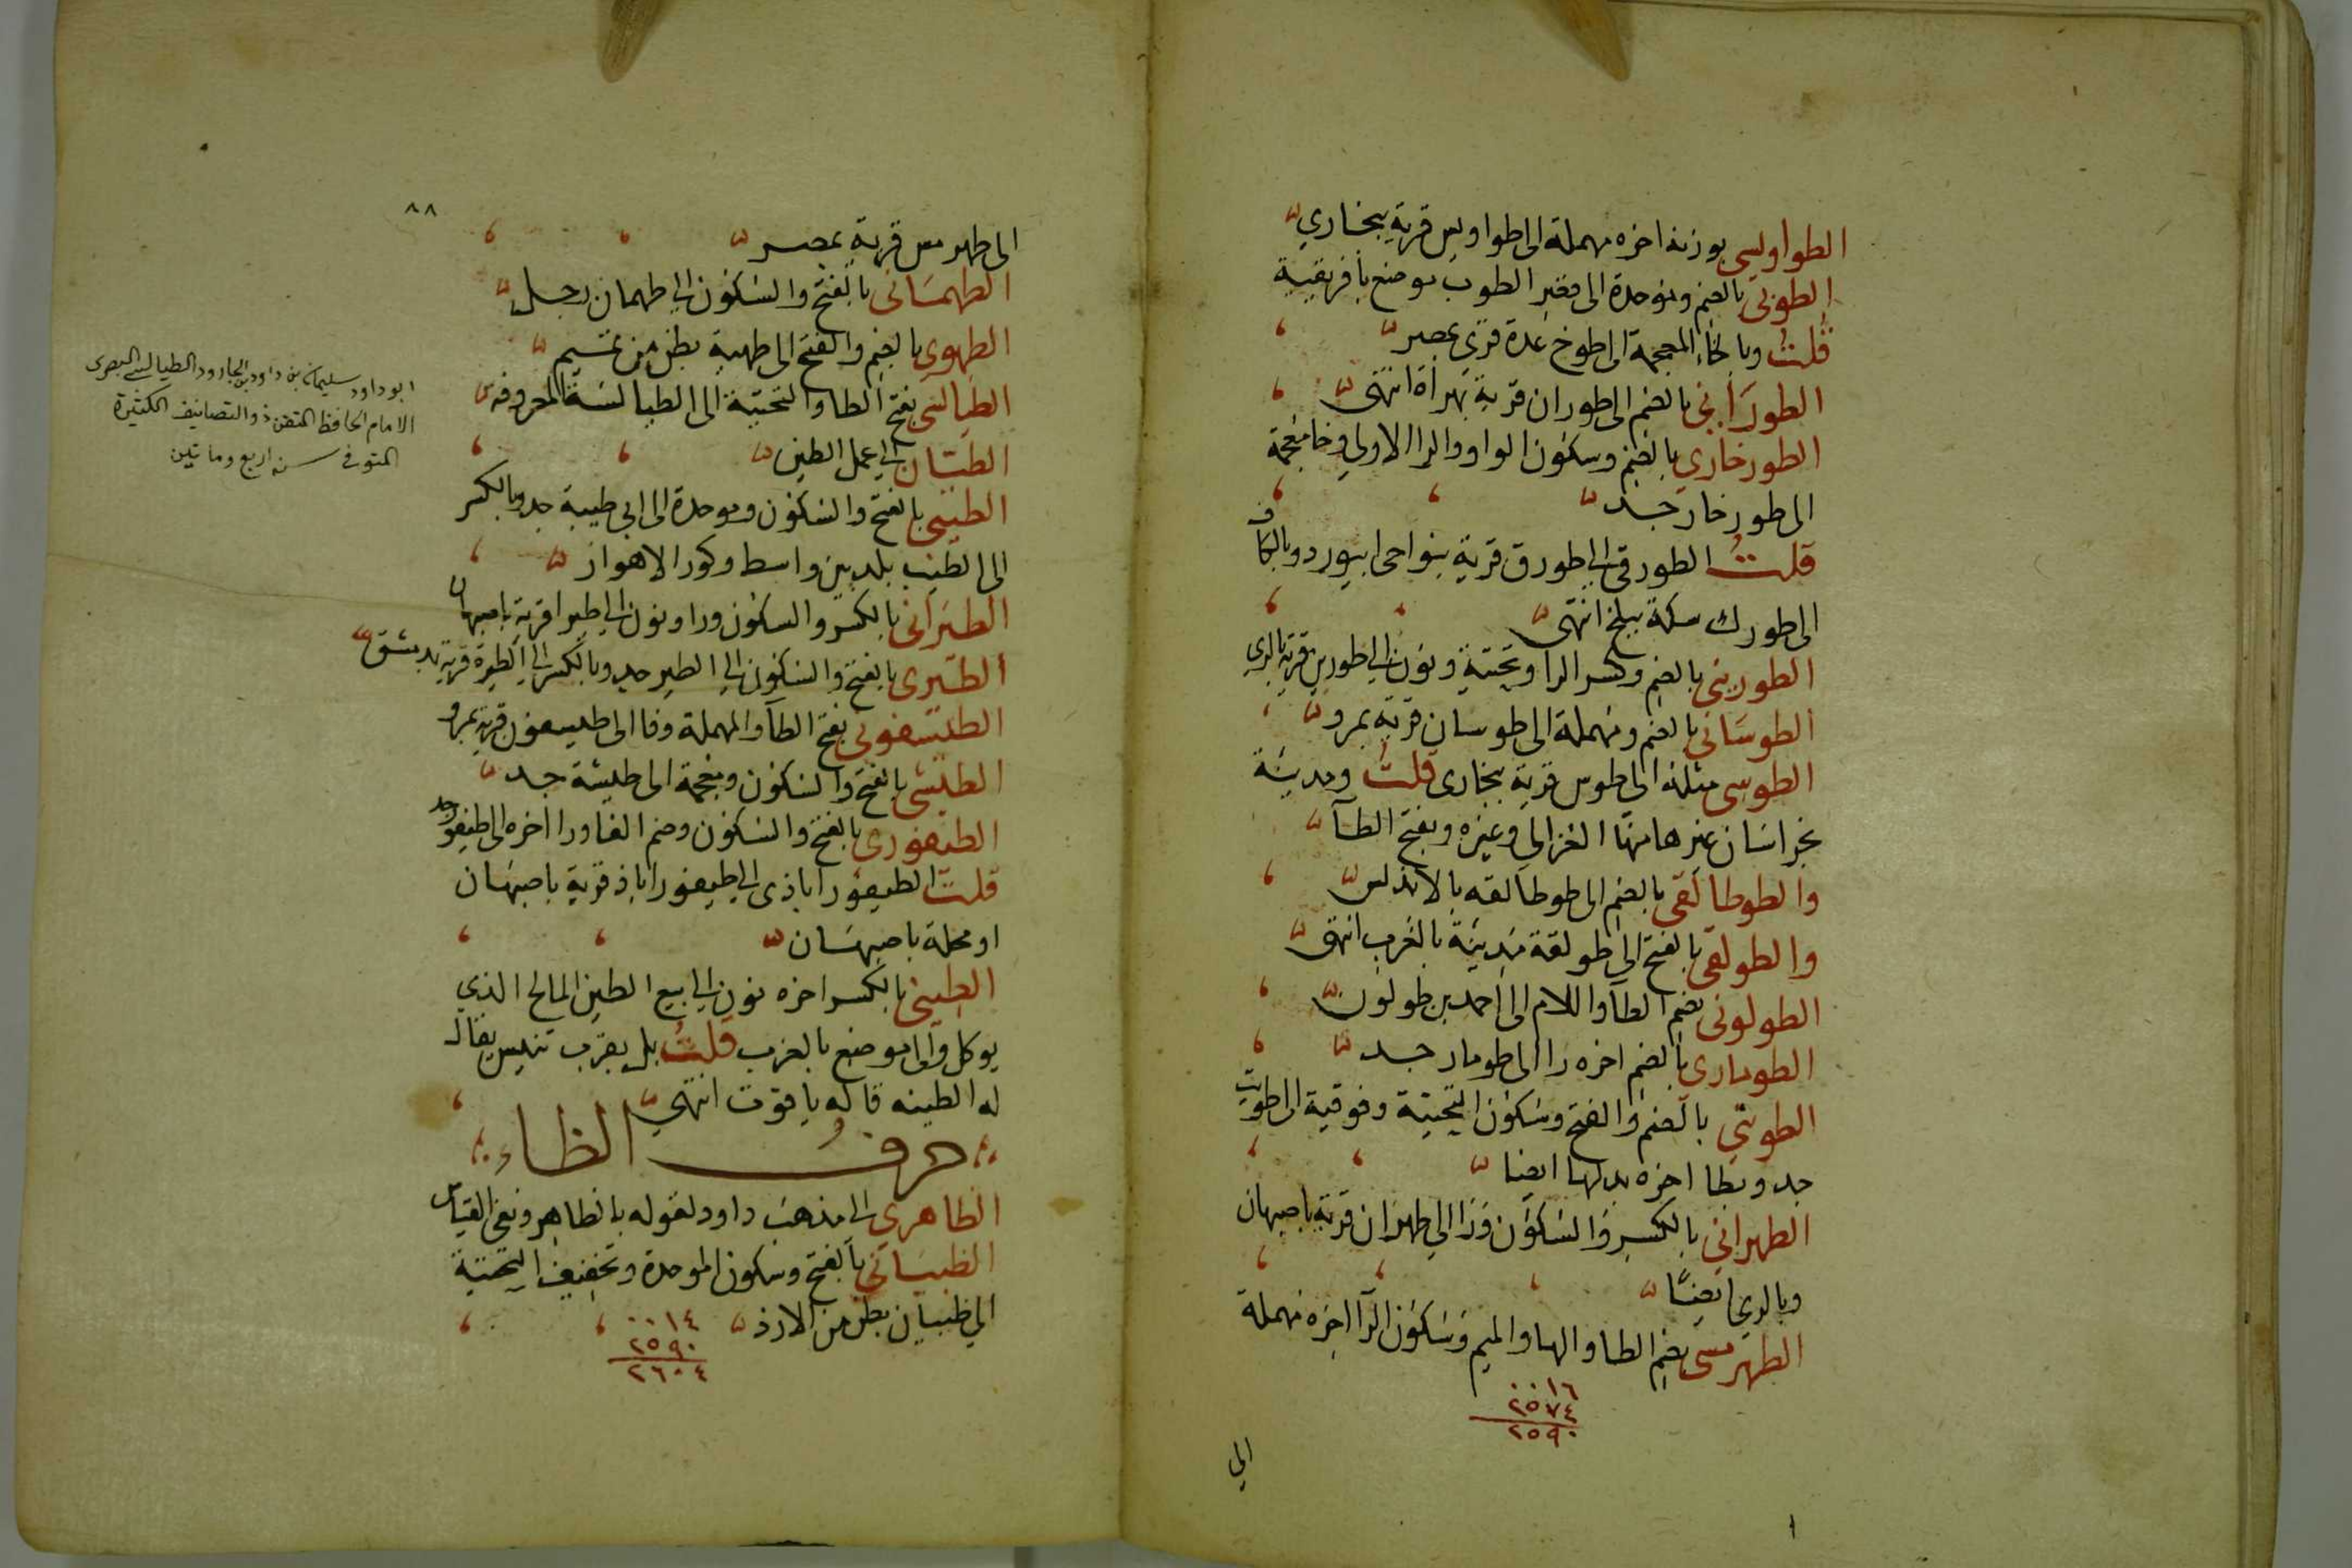 الطواويسى بوزنه اخره مهملة الى طواويس قرية ببخارى
الطوبى بالضم وموحدة الى قصر الطوب موضع بافريقية
قلت وبالخاء المعجمة الى طوخ عدة قرى بمصر
الطورانى بالضم الى طوران قرية بهراة انتهى
الطورخارى بالضم وسكون الواو والرا الاولى وخا معجمة
الى طورخار جد
قلت الطورقى الى طورق قرية بنواحى ابيورد وبالكاف
الى طورك سكة ببلخ انتهى
الطورينى بالضم وكسر الرا وتحتية ونون الى طورين قرية بالرى
الطوسانى بالضم ومهملة الى طوسان قرية بمرو
الطوسى مثله الى طوس قرية ببخارى قلت ومدينة
بخراسان غيرها منها الغزالى وغيره وبفتح الطآ
والطوطالقى بالضم الى طوطالقه بالاندلس
والطولقى بالفتح الى طولقة مدينة بالغرب انتهى
الطولونى بضم الطآ واللام الى احمد بن طولون
الطومارى بالضم اخره را الى طومار جد
الطويتى بالضم والفتح وسكون التحتية وفوقية الى طويت
جد وبطا اخره بدلها ايضا
الطهرانى بالكسر والسكون ورا الى طهران قرية باصبهان
وبالرى ايضًا
الطهرمسى بضم الطا والها والميم وسكون الرآ اخره مهملة
٠٠١٦
٢٥٧٤
٢٥٩٠
الى
٨٨
الى طهرمس قرية بمصر
الطهمسانى بالفتح والسكون الى طهمان رجل
الطهوى بالضم والفتح الى طهية بطن من تميم
الطيالسى بفتح الطا والتحتية الى الطيالسة المعروفه
الطيان الى عمل الطين
الطيبى بالفتح والسكون وموحدة الى ابى طيبة جد وبالكسر
الى الطيب بلد بين واسط وكور الاهواز
الطيرانى بالكسر والسكون ورا ونون الى طيرا قرية باصبهان
الطيرى بالفتح والسكون الى الطير جد وبالكسر الى الطيرة قرية بدمشق
الطيسفونى بفتح الطآ والمهملة وفا الى طيسفون قرية بمرو
الطيشى بالفتح والسكون ومعجمة الى طيشة جد
الطيفورى بالفتح والسكون وضم الفا ورا اخره الى طيفور جد
قلت الطيفوراباذى الى طيفوراباذ قرية باصبهان
او محلة باصبهان
الطينى بالكسر اخره نون الى بيع الطين المالح الذي
يوكل والى موضع بالغرب قلت بل بقرب تنيس يقال
له الطينه قاله ياقوت انتهى
حرف الظاء
الظاهرى الى مذهب داود لقوله بالظاهر ونفى القياس
الظبيانى بالفتح وسكون الموحدة وتخفيف التحتية
الى ظبيان بطن من الازد
٠٠١٤
٢٥٩٠
٢٦٠٤
ابو داود سليمان بن داود بن الجارود الطيالسى البصرى
الامام الحافظ المتقن ذو التصانيف الكثيرة
المتوفى سنة اربع وماتين